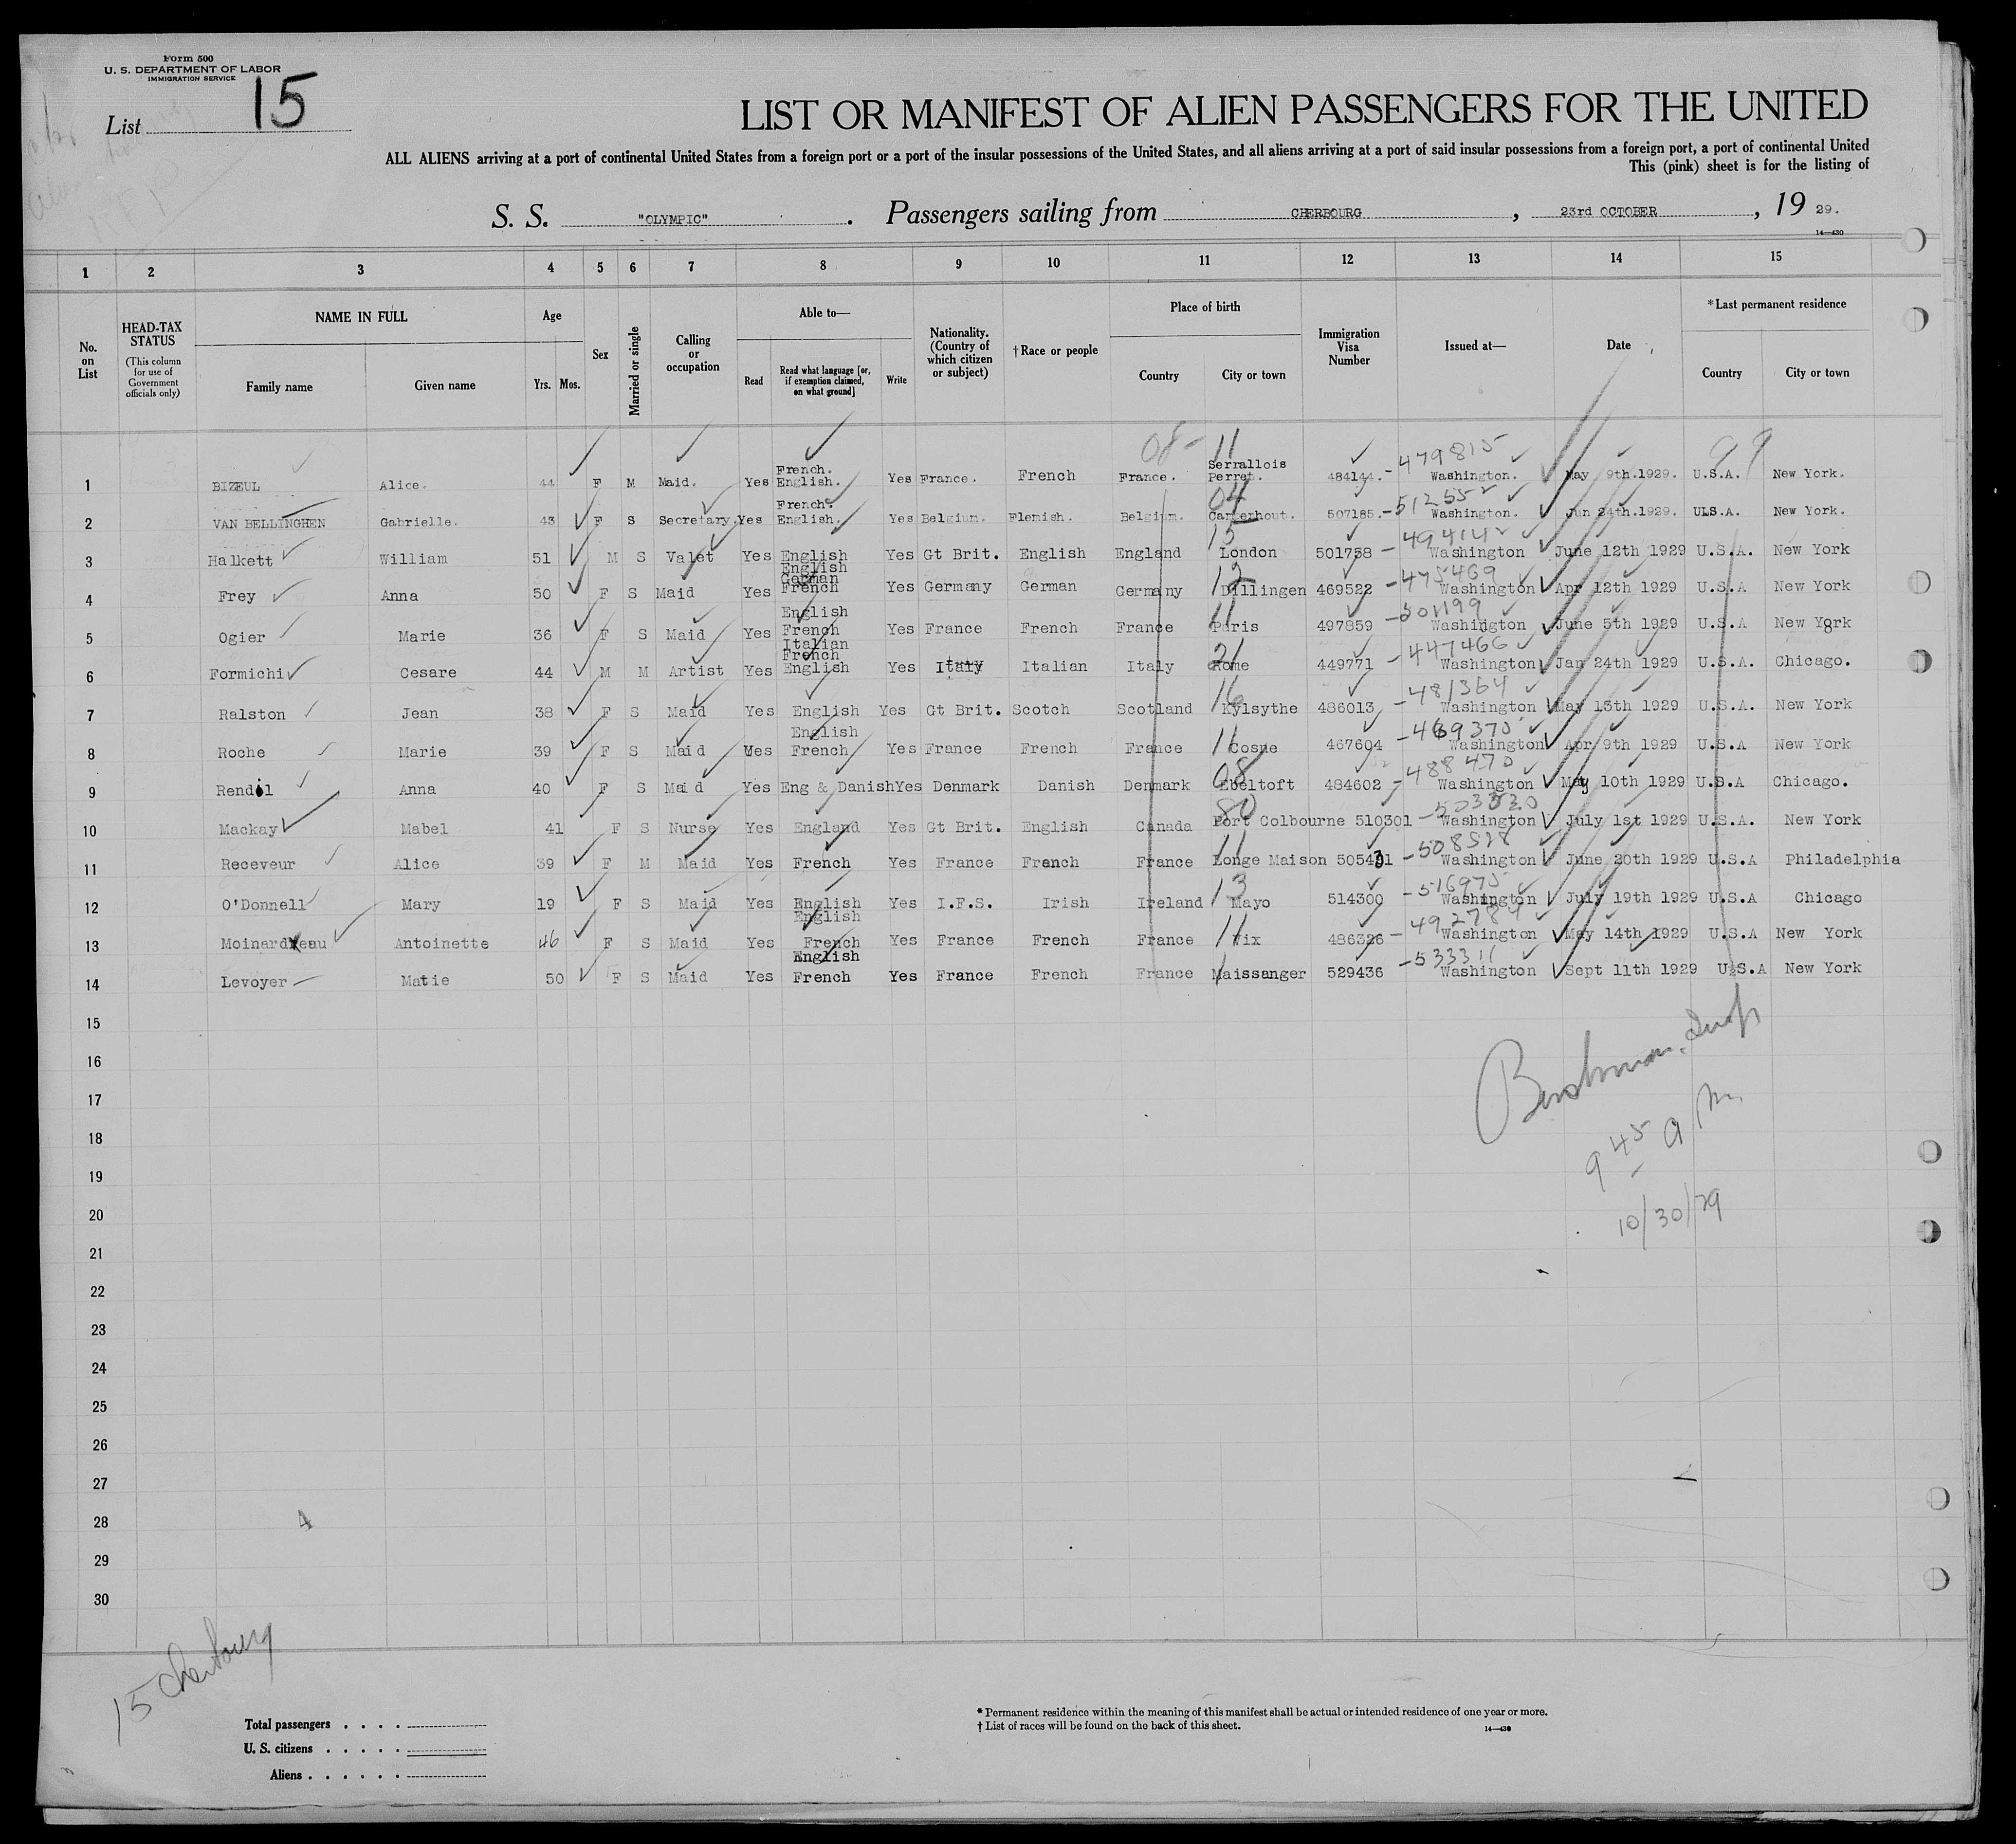 Form 500
U. S. DEPARTMENT OF LABOR
IMMIGRATION SERVICE
List 15
LIST OR MANIFEST OF ALIEN PASSENGERS FOR THE UNITED
ALL ALIENS arriving at a port of continental United States from a foreign port or a port of the insular possessions of the United States, and all aliens arriving at a port of said insular possessions from a foreign port, a port of continental United
This (pink) sheet is for the listing of
S. S. "OLYMPIC" . Passengers sailing from CHERBOURG , 23rd OCTOBER , 19 29.
14—430
1 2 3 4 5 6 7 8 9 10 11 12 13 14 15
No. on List
HEAD-TAX STATUS (This column for use of Government officials only)
NAME IN FULL
Family name Given name
Age
Yrs. Mos.
Sex
Married or single
Calling or occupation
Able to—
Read Read what language [or, if exemption claimed, on what ground] Write
Nationality. (Country of which citizen or subject)
†Race or people
Place of birth
Country City or town
Immigration Visa Number
Issued at—
Date
*Last permanent residence
Country City or town
08- 11 479815 99
1 BIZEUL Alice. 44 F M Maid. Yes French. English. Yes France. French France. Serrallois Perret. 484144. Washington. May 9th.1929. U.S.A. New York.
04 512552
2 VAN BELLINGHEN Gabrielle. 43 F S Secretary. Yes French. English. Yes Belgium. Flemish. Belgium. 507185. Washington. Jun 24th.1929. ULS.A. New York.
15 494142
3 Halkett William 51 M S Valet Yes English Yes Gt Brit. English England London 501758 Washington June 12th 1929 U.S.A. New York
12 475469
4 Frey Anna 50 F S Maid Yes English German French Yes Germany German Germany Dillingen 469522 Washington Apr 12th 1929 U.S.A New York
11 501199
5 Ogier Marie 36 F S Maid Yes English French Yes France French France Paris 497859 Washington June 5th 1929 U.S.A New York
21 447466
6 Formichi Cesare 44 M M Artist Yes Italian French English Yes Italy Italian Italy Rome 449771 Washington Jan 24th 1929 U.S.A. Chicago.
16 481364
7 Ralston Jean 38 F S Maid Yes English Yes Gt Brit. Scotch Scotland Kylsythe 486013 Washington May 13th 1929 U.S.A. New York
11 469375
8 Roche Marie 39 F S Maid Yes English French Yes France French France Cosne 467604 Washington Apr 9th 1929 U.S.A New York
08 488470
9 Rendil Anna 40 F S Maid Yes Eng & Danish Yes Denmark Danish Denmark Ebeltoft 484602 Washington May 10th 1929 U.S.A Chicago.
80 503320
10 Mackay Mabel 41 F S Nurse Yes England Yes Gt Brit. English Canada Port Colbourne 510301 Washington July 1st 1929 U.S.A. New York
11 508528
11 Receveur Alice 39 F M Maid Yes French Yes France French France Longe Maison Washington June 20th 1929 U.S.A Philadelphia
13 516975
12 O'Donnell Mary 19 F S Maid Yes English Yes I.F.S. Irish Ireland Mayo 514300 Washington July 19th 1929 U.S.A Chicago
11 492784
13 Moinardeau Antoinette 46 F S Maid Yes English French Yes France French France Vix 486326 Washington May 14th 1929 U.S.A New York
533311
14 Levoyer Matie 50 F S Maid Yes English French Yes France French France Maissanger 529436 Washington Sept 11th 1929 U.S.A New York
15
16
17
18
19
20
21
22
23
24
25
26
27
28
29
30
9 45 a m
10/30/29
4
15 Cherbourg
Total passengers
U. S. citizens
Aliens
* Permanent residence within the meaning of this manifest shall be actual or intended residence of one year or more.
† List of races will be found on the back of this sheet.
14—430